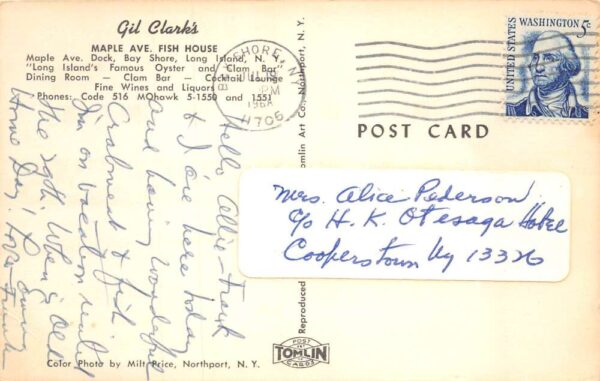 Gil Clark's
MAPLE AVE. FISH HOUSE
Maple Ave. Dock, Bay Shore, Long Island, N. Y.
"Long Island's Famous Oyster and Clam Bar"
Dining Room — Clam Bar — Cocktail Lounge
Fine Wines and Liquors
Phones: Code 516 MOhawk 5-1550 and 1551
Hello Allie - Frank
& I are here today
and having wonderful
Crabmeat & fish.
I'm on vacation until
the 29th. When is Old
Home Day? Love
Color Photo by Milt Price, Northport, N. Y.
Reproduced
Tomlin Art Co., Northport, N. Y.
BAY SHORE, N.Y.
PM
11706
UNITED STATES
WASHINGTON 5¢
POST CARD
Mrs. Alice Pederson
c/o H. K. Otesaga Hotel
Cooperstown Ny 13326
POST
TOMLIN
CARDS